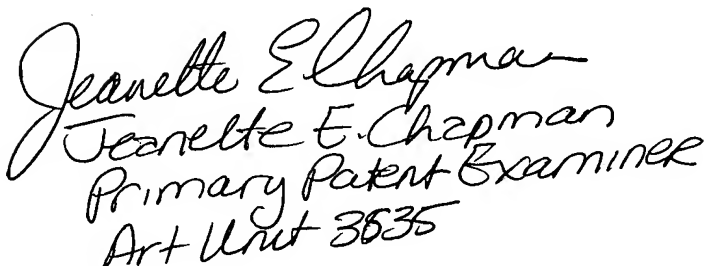 Jeanette E. Chapman
Jeanette E. Chapman
Primary Patent Examiner
Art Unit 3635